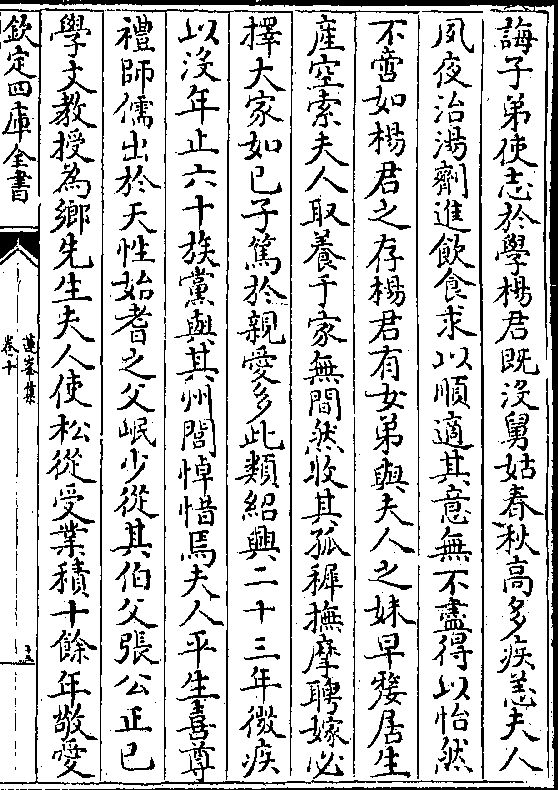 誨子弟使志於學楊君既沒舅姑春秋高多疾恙夫人
夙夜治湯劑進飲食求以順適其意無不盡得以怡然
不啻如楊君之存楊君有女弟與夫人之妹早嫠居生
產空索夫人取養于家無間然收其孤穉撫摩聘嫁必
擇大家如已子篤於親愛多此類紹興二十三年微疾
以沒年止六十族黨與其州閭悼惜焉夫人平生喜尊
禮師儒出於天性始耆之父岷少從其伯父張公正已
學文教授為鄉先生夫人使松從受業積十餘年敬愛
欽定四庫全書
蓮峯集
卷十
五